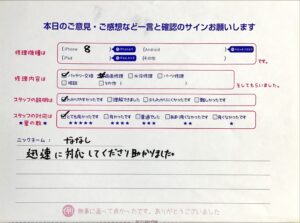 本日のご意見・ご感想など一言と確認のサインお願いします
修理機種は
iPhone 8
Android
iPad
その他
です。
修理内容は
バッテリー交換 画面修理 水没修理 パーツ修理
相談 その他
をしてもらいました。
スタッフの説明は
わかりやすかったです 理解できました 少しわかりにくかったです 難しかったです
スタッフの対応は
★星の数★
とても良かったです 良かったです 普通でした あまり良くなかったです 良くなかったです
★★★★★ ★★★★ ★★★ ★★ ★
ニックネーム: ななし
迅速に対応してくださり助かりました。
無事に直って良かったです。ありがとうございました